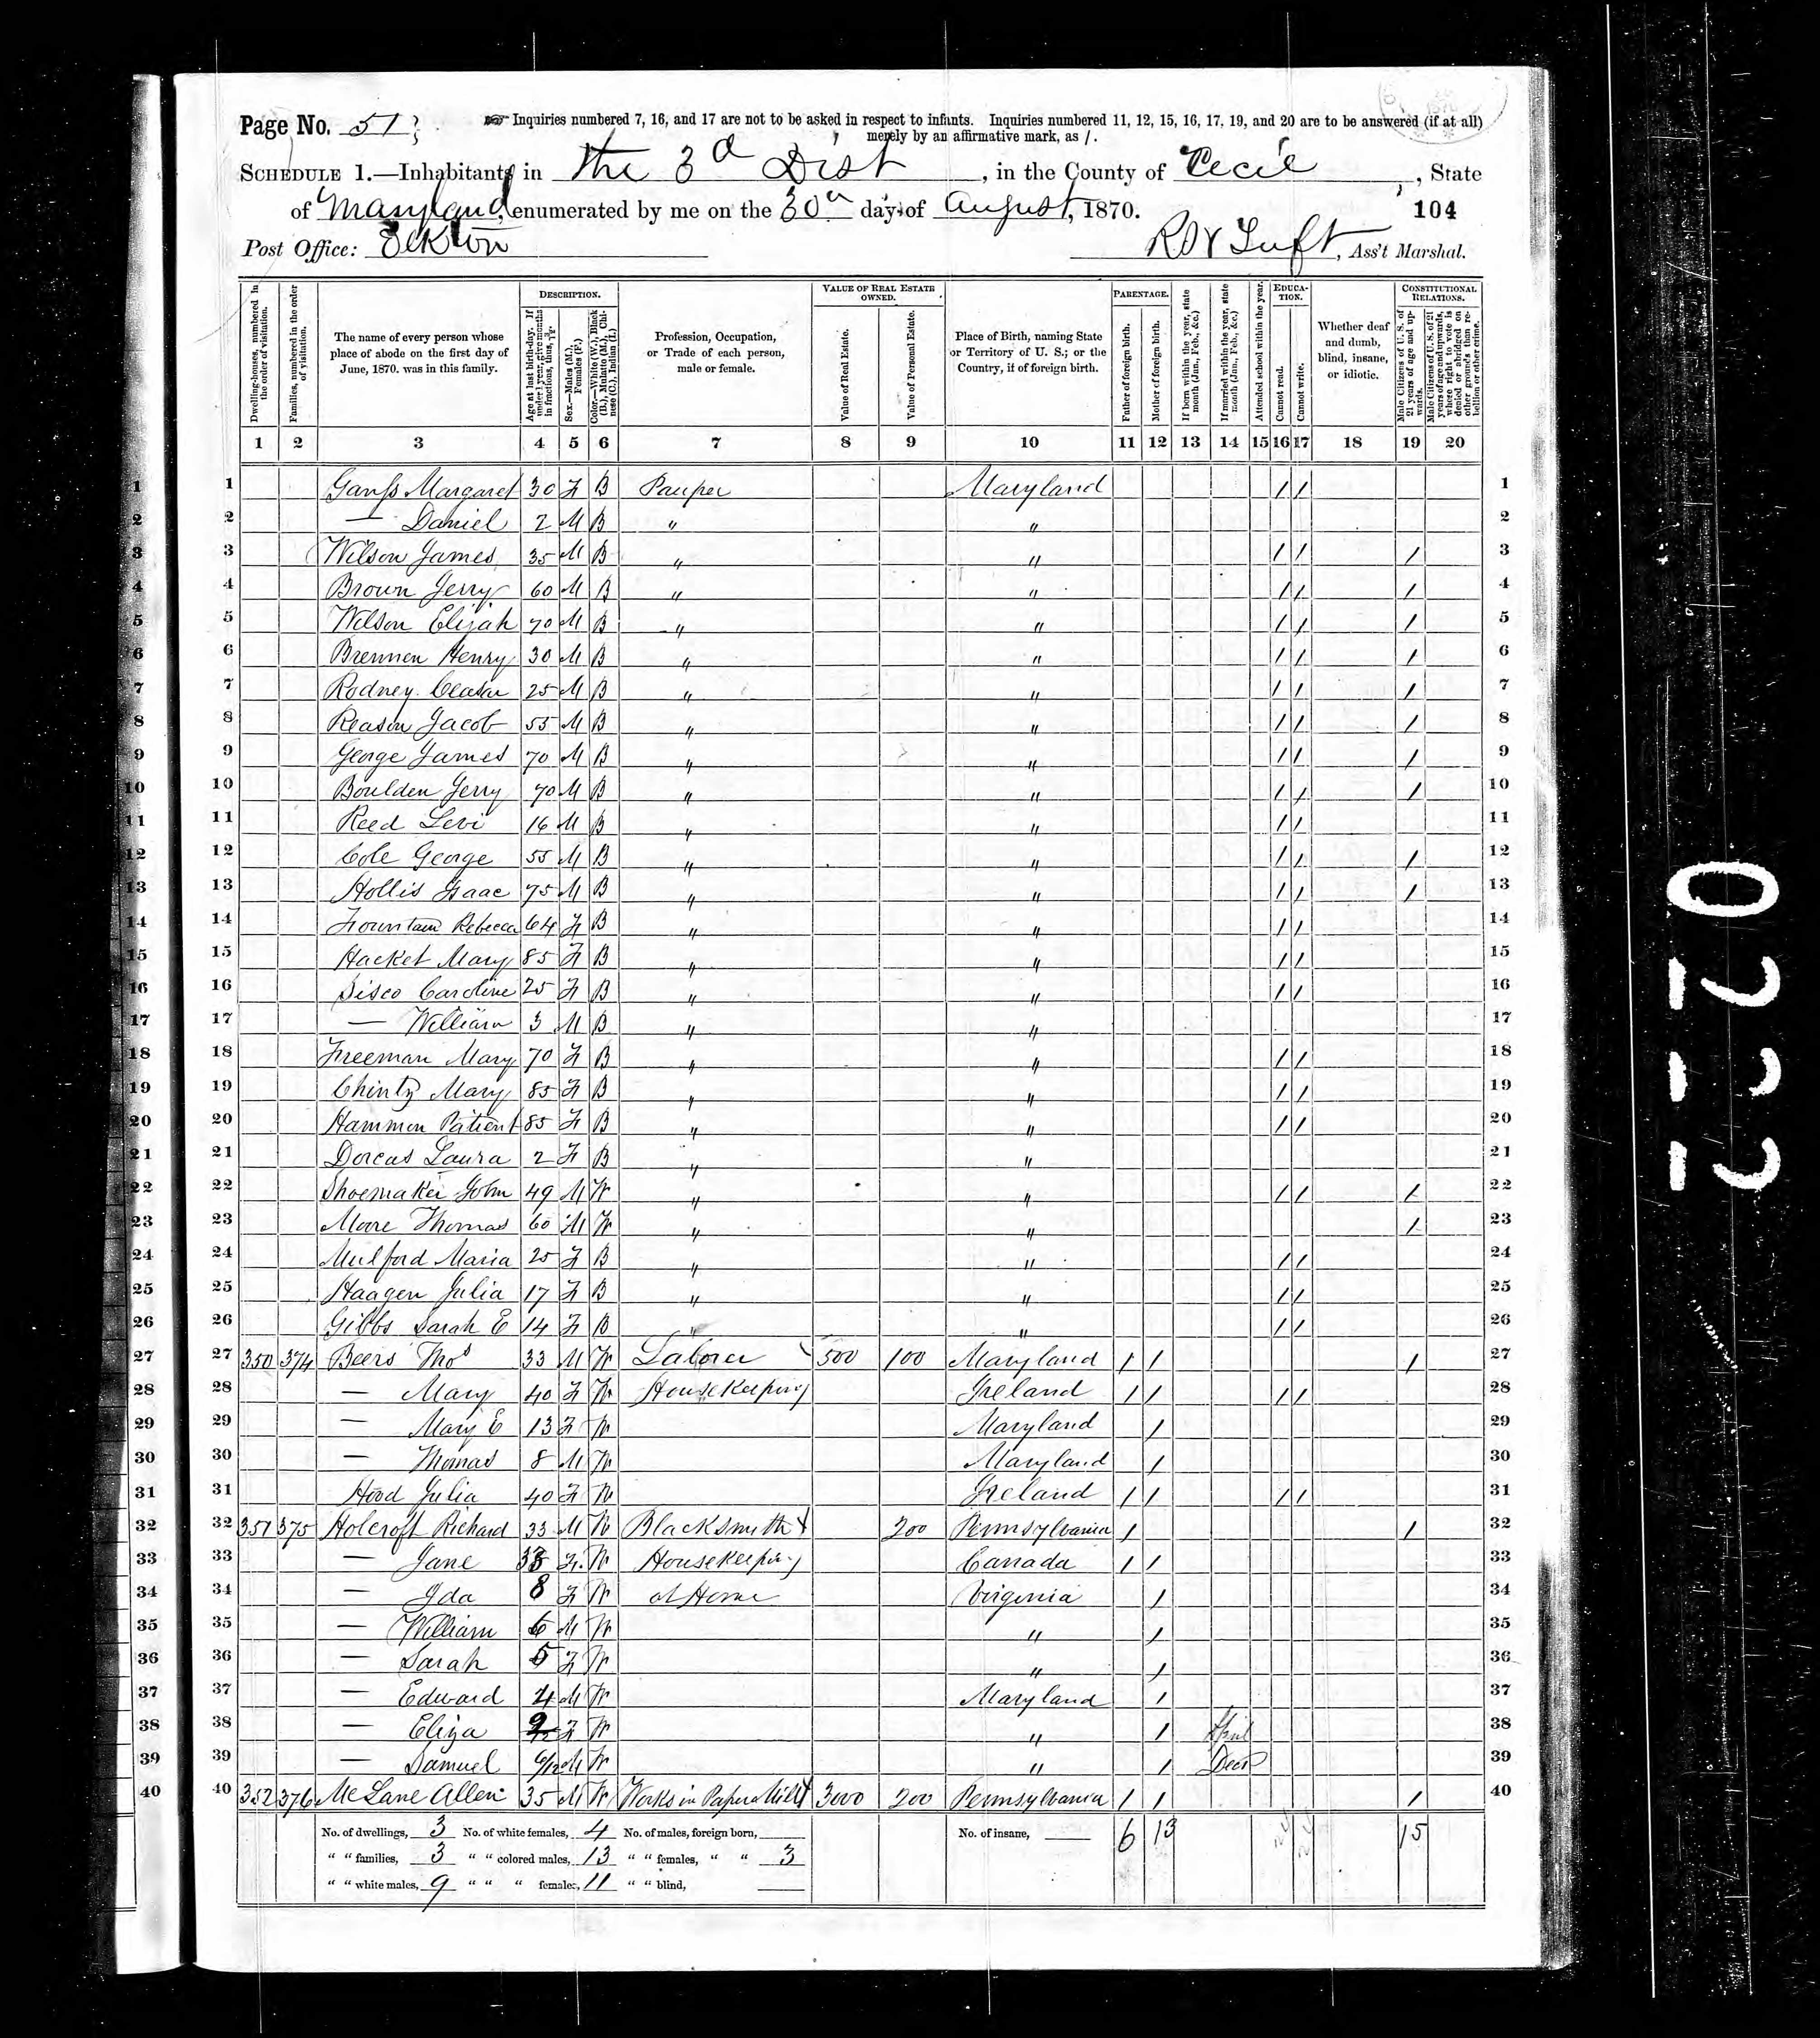 Page No. 51 Inquiries numbered 7, 16, and 17 are not to be asked in respect to infants. Inquiries numbered 11, 12, 15, 16, 17, 19, and 20 are to be answered (if at all)
merely by an affirmative mark, as /.
SCHEDULE 1.—Inhabitants in the 3d Dist, in the County of Cecil, State
of Maryland, enumerated by me on the 30th day of August, 1870. 104
Post Office: Elkton Tuft, Ass't Marshal.
Dwelling-houses, numbered in the order of visitation.
Families, numbered in the order of visitation.
The name of every person whose place of abode on the first day of June, 1870, was in this family.
DESCRIPTION.
Age at last birth-day. If under 1 year, give months in fractions, thus, 3/12.
Sex.—Males (M.), Females (F.)
Color.—White (W.), Black (B.), Mulatto (M.), Chinese (C.), Indian (I.)
Profession, Occupation, or Trade of each person, male or female.
VALUE OF REAL ESTATE OWNED.
Value of Real Estate.
Value of Personal Estate.
Place of Birth, naming State or Territory of U. S.; or the Country, if of foreign birth.
PARENTAGE.
Father of foreign birth.
Mother of foreign birth.
If born within the year, state month (Jan., Feb., &c.)
If married within the year, state month (Jan., Feb., &c.)
Attended school within the year.
EDUCATION.
Cannot read.
Cannot write.
Whether deaf and dumb, blind, insane, or idiotic.
CONSTITUTIONAL RELATIONS.
Male Citizens of U. S. of 21 years of age and upwards.
Male Citizens of U. S. of 21 years of age and upwards, where right to vote is denied or abridged on other grounds than rebellion or other crime.
1 2 3 4 5 6 7 8 9 10 11 12 13 14 15 16 17 18 19 20
1 1 Margaret 30 F B Pauper Maryland / / 1
2 2 — Daniel 2 M B " " 2
3 3 Wilson James 35 M B " " / / / 3
4 4 Brown Jerry 60 M B " " / / / 4
5 5 Wilson Elijah 70 M B " " / / / 5
6 6 Brennen Henry 30 M B " " / / / 6
7 7 Rodney Ceasar 25 M B " " / / / 7
8 8 Reason Jacob 55 M B " " / / / 8
9 9 George James 70 M B " " / / / 9
10 10 Boulden Jerry 70 M B " " / / / 10
11 11 Reed Levi 16 M B " " / / 11
12 12 Cole George 55 M B " " / / / 12
13 13 Hollis Isaac 75 M B " " / / / 13
14 14 Fountain Rebecca 64 F B " " / / 14
15 15 Hacket Mary 85 F B " " / / 15
16 16 Sisco Caroline 25 F B " " / / 16
17 17 — William 3 M B " " 17
18 18 Freeman Mary 70 F B " " / / 18
19 19 Mary 85 F B " " / / 19
20 20 Hammon Patient 85 F B " " / / 20
21 21 Dorcas Laura 2 F B " " 21
22 22 Shoemaker John 49 M W " " / / / 22
23 23 Moore Thomas 60 M W " " / 23
24 24 Mulford Maria 25 F B " " / / 24
25 25 Haagen Julia 17 F B " " / / 25
26 26 Gibbs Sarah E 14 F B " " / / 26
27 27 350 374 Beers Thos 33 M W Laborer 500 100 Maryland / / / 27
28 28 — Mary 40 F W Housekeeping Ireland / / / / 28
29 29 — Mary E 13 F W Maryland / 29
30 30 — Thomas 8 M W Maryland / 30
31 31 Hood Julia 40 F W Ireland / / / / 31
32 32 351 375 Holcroft Richard 33 M W Blacksmith 200 Pennsylvania / / 32
33 33 — Jane 33 F W Housekeeping Canada / / 33
34 34 — Ida 8 F W at Home Virginia / 34
35 35 — William 6 M W " / 35
36 36 — Sarah 5 F W " / 36
37 37 — Edward 4 M W Maryland / 37
38 38 — Eliza 2 F W " / April 38
39 39 — Samuel 6/12 M W " / Decr 39
40 40 352 376 McLane Allen 35 M W Works in Paper Mill 3000 200 Pennsylvania / / / 40
No. of dwellings, 3 No. of white females, 4 No. of males, foreign born, No. of insane, 6 13 15
" " families, 3 " " colored males, 13 " " females, " " 3
" " white males, 9 " " " females, 11 " " blind,
0722